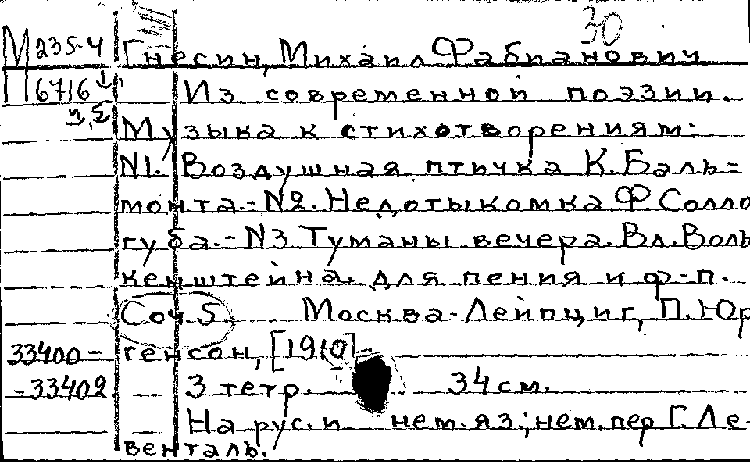 30
М 235-4 Гнесин, Михаил Фабианович
П 6716 Из современной поэзии.
Музыка к стихотворениям:
N1. Воздушная птичка К. Баль=
монта.-N2. Недотыкомка Ф Солло
губа.-N3 Туманы вечера. Вл. Воль
кенштейна. для пения и ф-п.
Соч 5. Москва-Лейпциг, П. Юр
генсон, [1910]
33400-
-33402 3 тетр. 34 см.
На рус. и нем. яз.; нем. пер Г. Ле-
венталь.